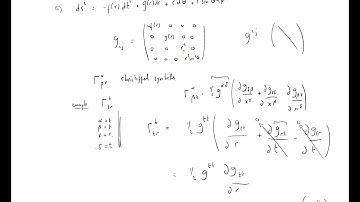 c) ds² = -f(r) dt² + g(r) dr² + r² dθ² + r² sin²θ dφ²
g_ij = ( -f(r) 0 0 0
0 g(r) 0 0
0 0 r² 0
0 0 0 r² sin²θ ) g^ij ( \ )
Γ^α_βγ christoffel symbols Γ^α_βγ = ½ g^αδ ( ∂g_δβ/∂x^γ + ∂g_δγ/∂x^β - ∂g_βγ/∂x^δ )
example Γ^t_tr
α = t
β = t
γ = r
δ = t
Γ^t_tr = ½ g^tt ( ∂g_tt/∂r + ∂g_rt/∂t - ∂g_tr/∂t )
= ½ g^tt ∂g_tt/∂r